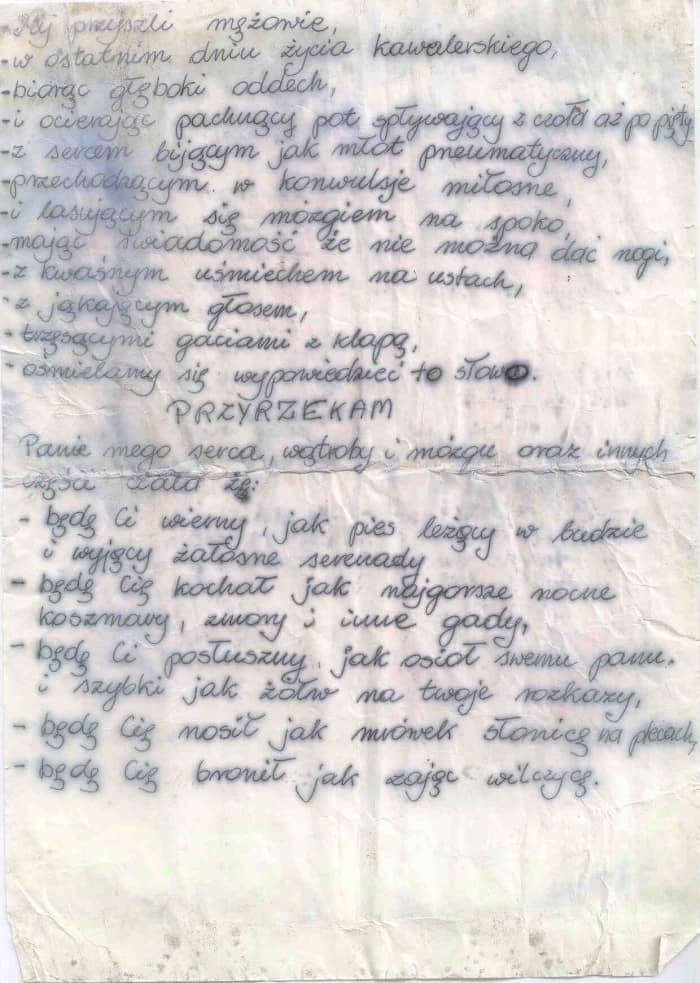 -My przyszli mężowie,
-w ostatnim dniu życia kawalerskiego,
-biorąc głęboki oddech,
-i ocierając pachnący pot spływający z czoła aż po pięty
-z sercem bijącym jak młot pneumatyczny,
-przechodzącym w konwulsje miłosne,
-i lasującym się mózgiem na spoko,
-mając świadomość że nie można dać nogi,
-z kwaśnym uśmiechem na ustach,
-z jąkającym głosem,
-trzęsącymi gaciami z klapą,
-ośmielamy się wypowiedzieć to słowo.
PRZYRZEKAM
Panie mego serca, wątroby i mózgu oraz innych
części ciała że:
- będę Ci wierny, jak pies leżący w budzie
i wyjący żałosne serenady
- będę Cię kochał jak najgorsze nocne
koszmary, zmory i inne gady,
- będę Ci posłuszny, jak osioł swemu panu.
i szybki jak żółw na twoje rozkazy,
- będę Cię nosił jak mrówek słonicę na plecach,
- będę Cię bronił jak zając wilczycę.